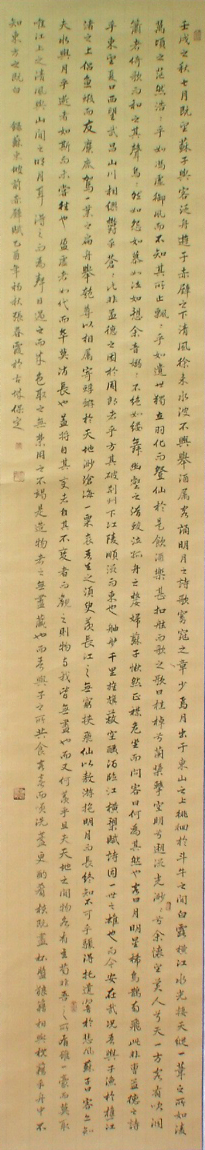 壬戌之秋七月既望蘇子與客泛舟遊于赤壁之下清風徐來水波不興舉酒屬客誦明月之詩歌窈窕之章少焉月出于東山之上徘徊於斗牛之間白露橫江水光接天縱一葦之所如凌
萬頃之茫然浩浩乎如馮虛御風而不知其所止飄飄乎如遺世獨立羽化而登仙於是飲酒樂甚扣舷而歌之歌曰桂棹兮蘭槳擊空明兮溯流光渺渺兮余懷望美人兮天一方客有吹洞
簫者倚歌而和之其聲嗚嗚然如怨如慕如泣如訴餘音嫋嫋不絕如縷舞幽壑之潛蛟泣孤舟之嫠婦蘇子愀然正襟危坐而問客曰何為其然也客曰月明星稀烏鵲南飛此非曹孟德之詩
乎東望夏口西望武昌山川相繆鬱乎蒼蒼此非孟德之困於周郎者乎方其破荊州下江陵順流而東也舳艫千里旌旗蔽空釃酒臨江橫槊賦詩固一世之雄也而今安在哉況吾與子漁樵於江
渚之上侶魚蝦而友麋鹿駕一葉之扁舟舉匏樽以相屬寄蜉蝣於天地渺滄海一粟哀吾生之須臾羨長江之無窮挾飛仙以遨遊抱明月而長終知不可乎驟得託遺響於悲風蘇子曰客亦知
夫水與月乎逝者如斯而未嘗往也盈虛者如代而卒莫消長也蓋將自其變者自其不變者而觀之則物與我皆無盡也而又何羨乎且夫天地之間物各有主苟非吾之所有雖一毫而莫取
惟江上之清風與山間之明月耳得之而為聲目遇之而成色取之無禁用之不竭是造物者之無盡藏也而吾與子之所共食客喜而笑洗盞更酌肴核既盡杯盤狼藉相與枕藉乎舟中不
知東方之既白 錄蘇東坡前赤壁賦乙酉年初秋張春霞於古城保定